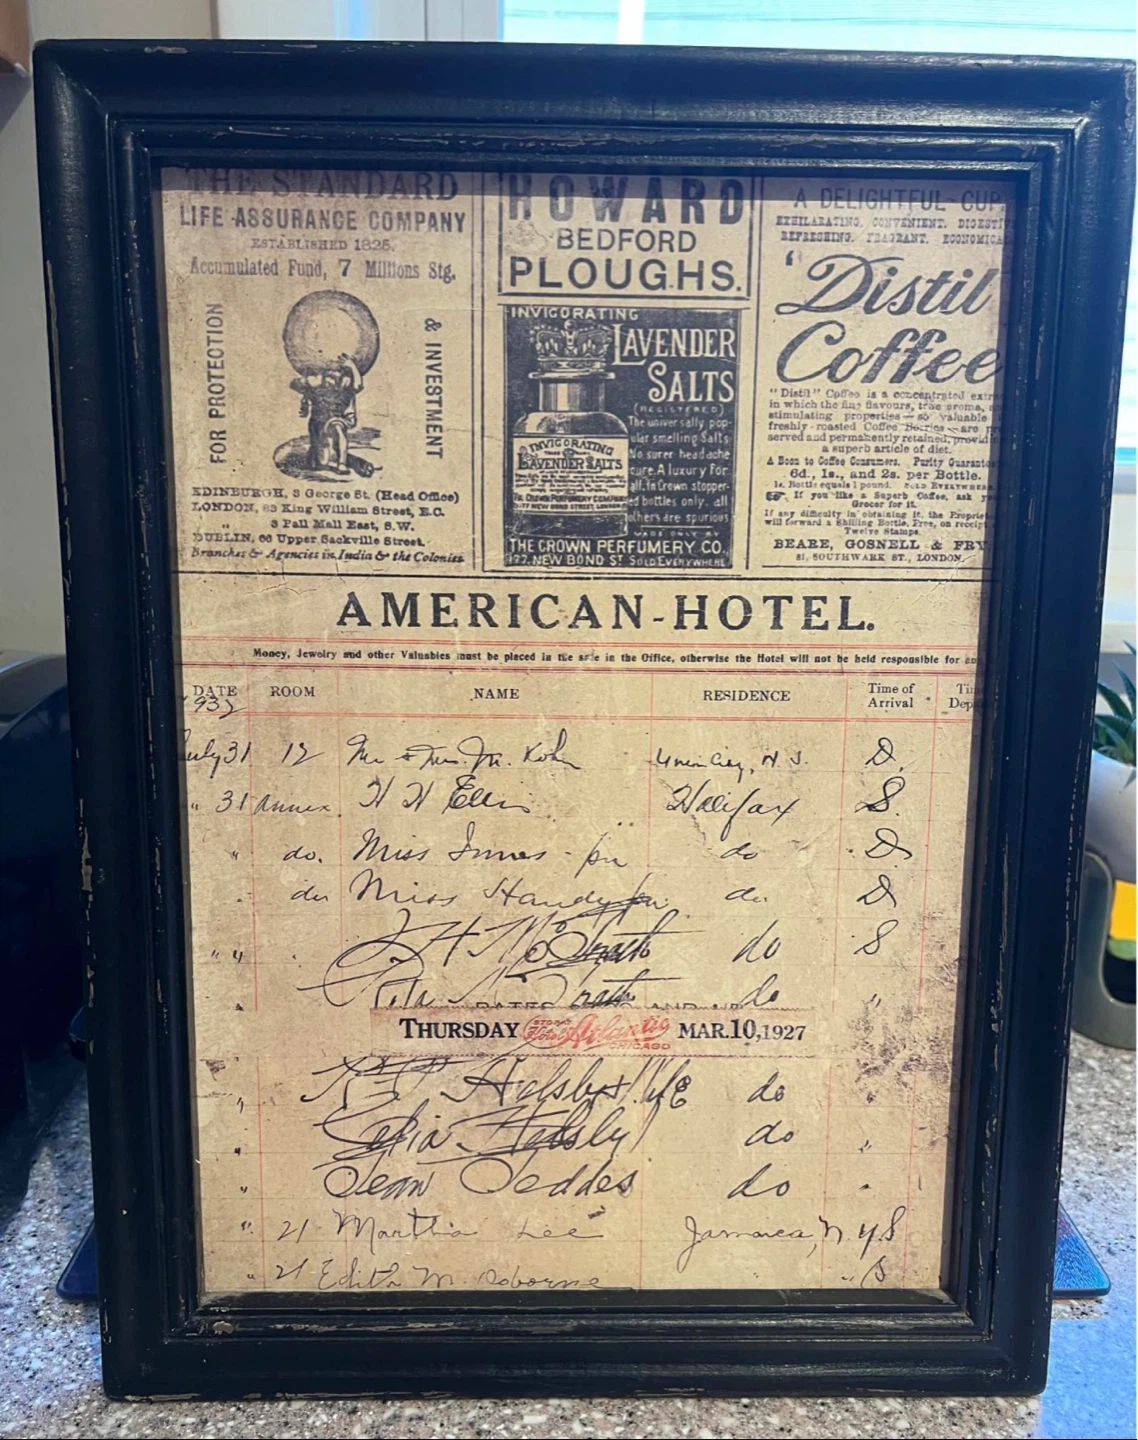 THE STANDARD
LIFE ASSURANCE COMPANY
ESTABLISHED 1825.
Accumulated Fund, 7 Millions Stg.
FOR PROTECTION
& INVESTMENT
EDINBURGH, 3 George St. (Head Office)
LONDON, 83 King William Street, E.C.
" 3 Pall Mall East, S.W.
DUBLIN, 66 Upper Sackville Street.
Branches & Agencies in India & the Colonies.
HOWARD
BEDFORD
PLOUGHS.
INVIGORATING
LAVENDER
SALTS
(REGISTERED)
The universally pop-
ular smelling Salts
No surer headache
cure. A luxury for
all. In Crown stopper-
ed bottles only. all
others are spurious
MADE ONLY BY
INVIGORATING
LAVENDER SALTS
THE CROWN PERFUMERY COMPANY
177 NEW BOND STREET, LONDON
THE CROWN PERFUMERY CO.
177, NEW BOND ST SOLD EVERYWHERE
A DELIGHTFUL CUP
EXHILARATING. CONVENIENT. DIGESTIV
REFRESHING. FRAGRANT. ECONOMICA
'Distil
Coffee
"Distil" Coffee is a concentrated extra
in which the fine flavours, true aroma, an
stimulating properties—so valuable
freshly-roasted Coffee Berries—are pr
served and permanently retained, providi
a superb article of diet.
A Boon to Coffee Consumers. Purity Guarante
6d., 1s., and 2s. per Bottle.
1s. Bottle equals 1 pound. SOLD EVERYWHERE.
If you like a Superb Coffee, ask y
Grocer for it.
If any difficulty in obtaining it, the Propriet
will forward a Shilling Bottle, Free, on receipt
Twelve Stamps.
BEARE, GOSNELL & FRY
81, SOUTHWARK ST., LONDON.
AMERICAN-HOTEL.
Money, Jewelry and other Valuables must be placed in the safe in the Office, otherwise the Hotel will not be held responsible for an
DATE ROOM NAME RESIDENCE Time of Arrival Tim Dep
July 31 12 Mr & Mrs. M. Kohn Union City, N J. D.
" 31 Annex H H Ellis Halifax S.
" do. Miss Innes do D
do Miss Handy do D
" 4 J H McGrath do S
" Rita McGrath do "
THURSDAY Hotel Atlantic CHICAGO MAR.10,1927
" Helsby + Wife do "
" Celia Helsby do "
" Jean Geddes do "
" 21 Martha Lee Jamaica, N Y S
" 21 Edith M. Osborne " " S